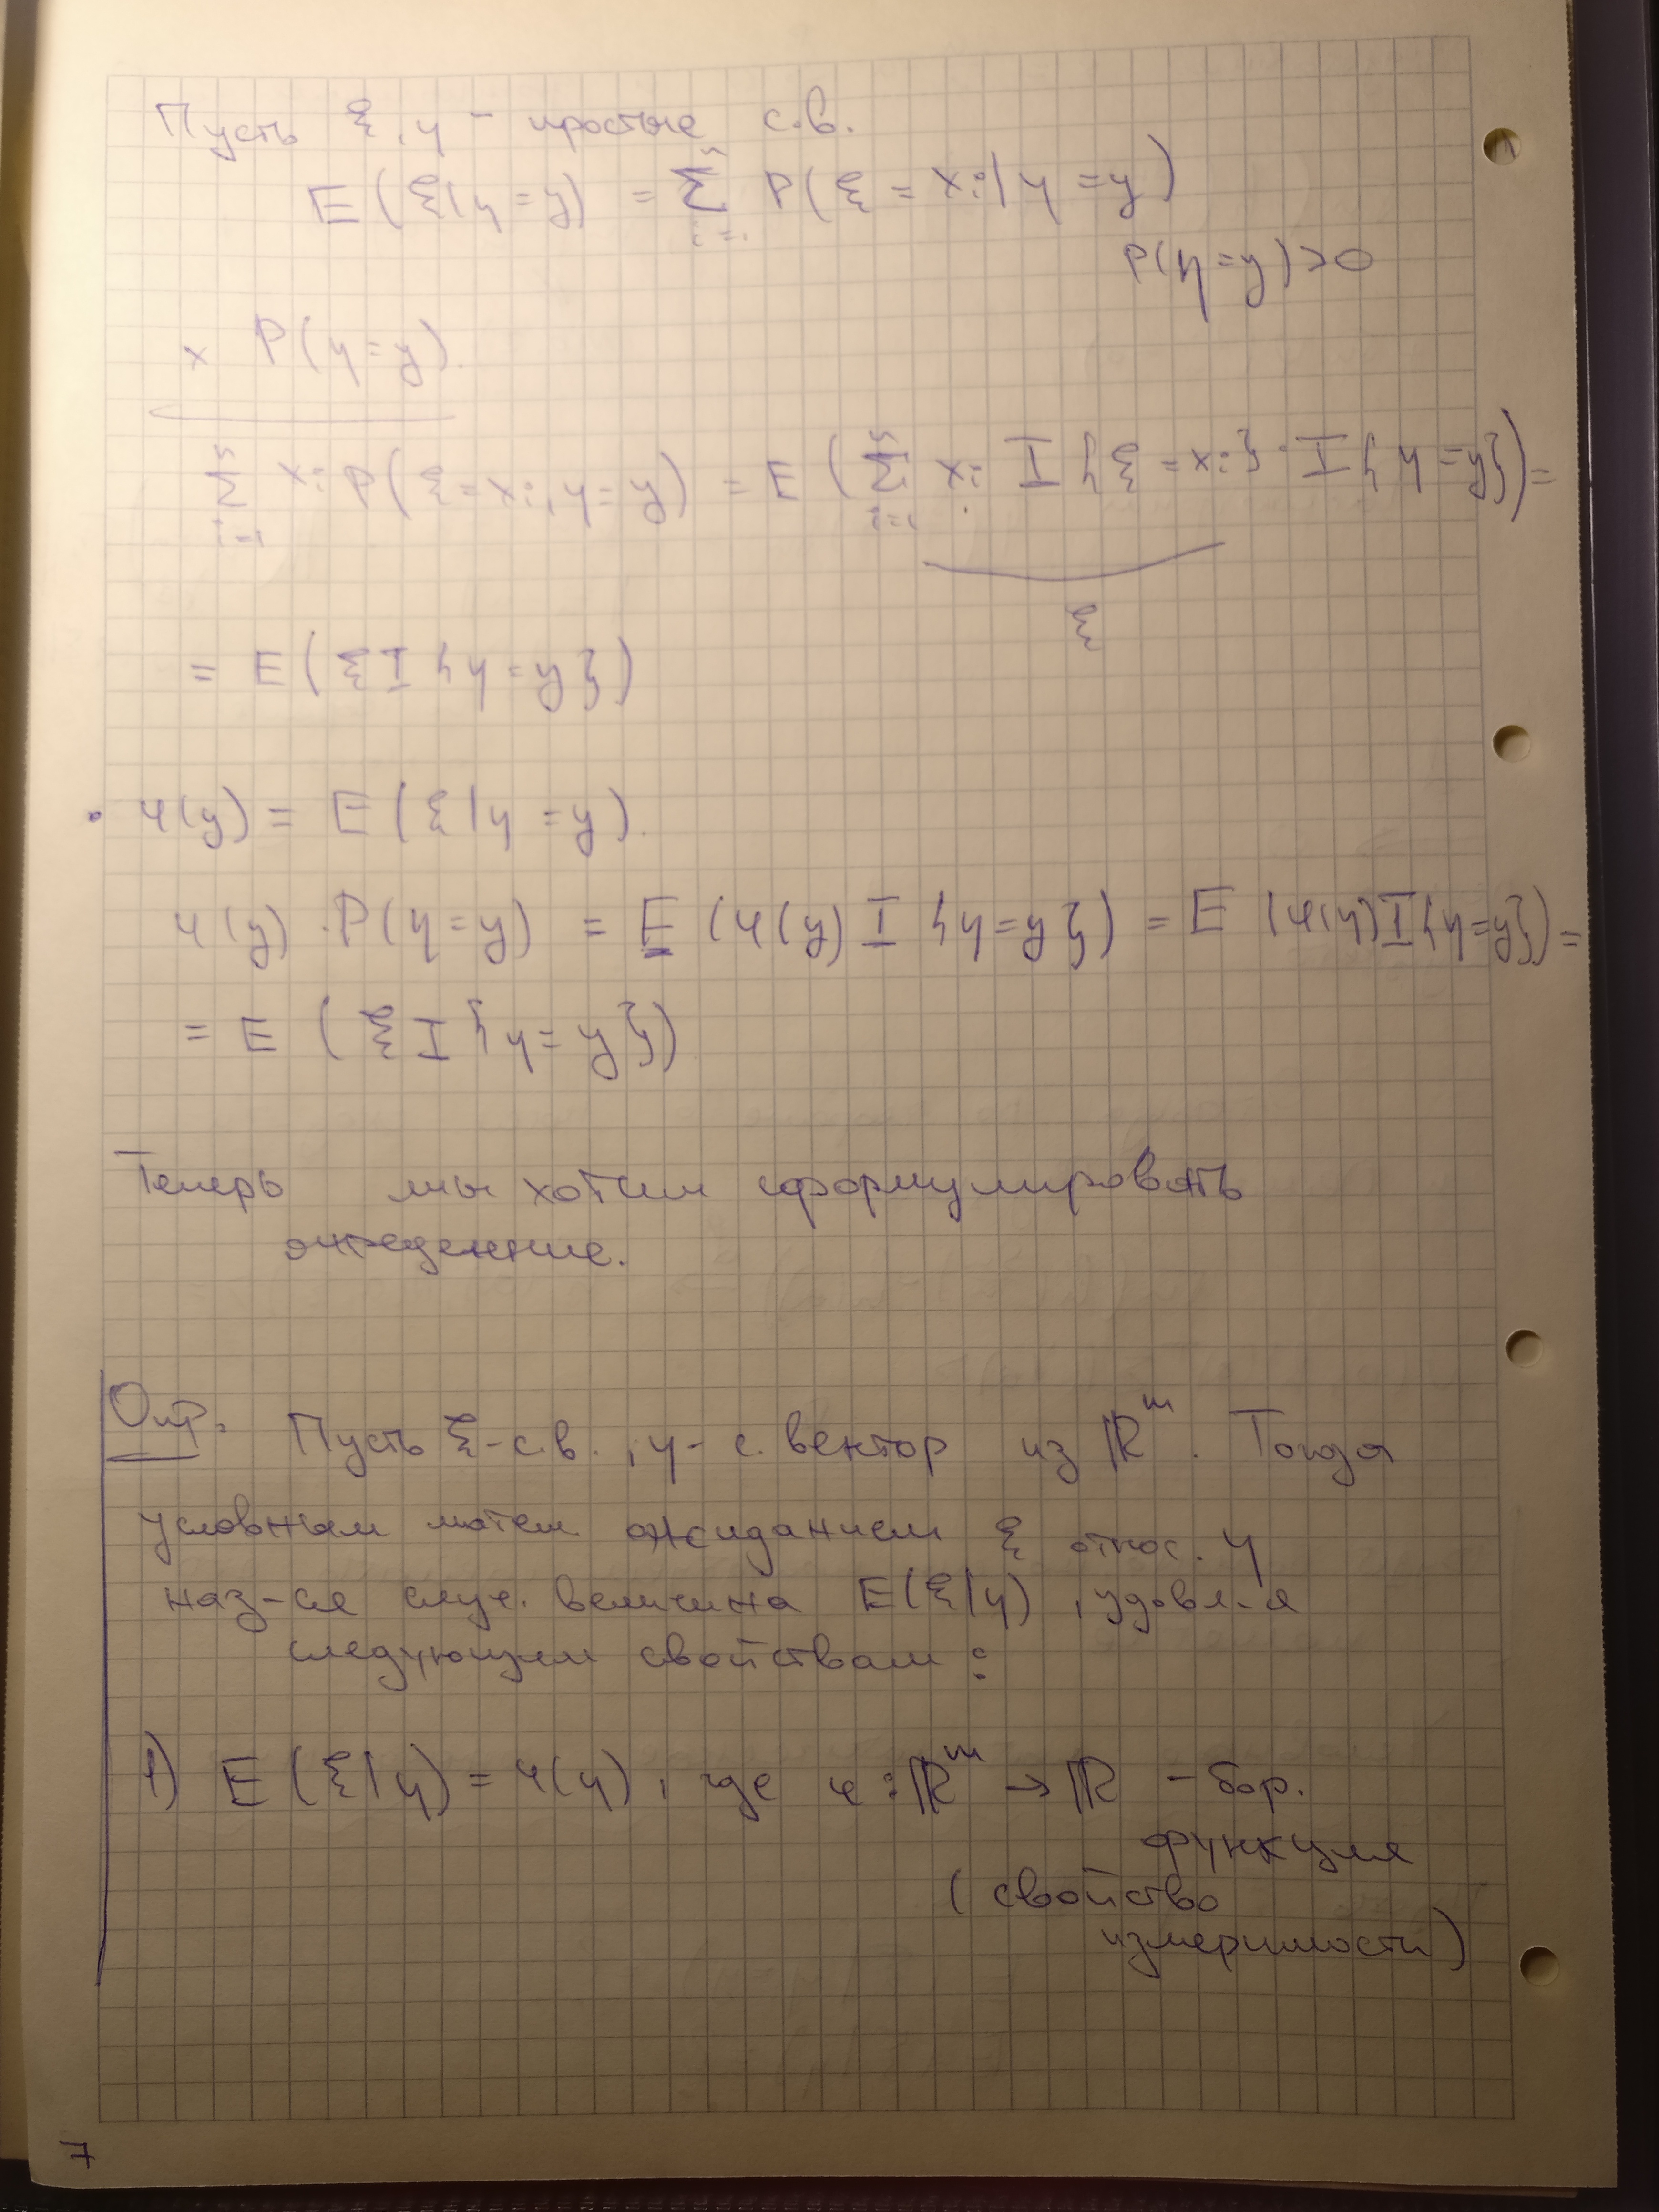 Пусть ξ, η - простые с.в.
E(ξ|η=y) = ∑_{i=1}^{n} P(ξ = x_i | η = y)
P(η=y)>0
× P(η=y).
∑_{i=1}^{n} x_i P(ξ=x_i, η=y) = E(∑_{i=1}^{n} x_i I{ξ=x_i}·I{η=y}) =
ξ
= E(ξ I{η=y})
• φ(y) = E(ξ|η=y).
φ(y)·P(η=y) = E(φ(y) I{η=y}) = E(φ(η) I{η=y}) =
= E(ξ I{η=y})
Теперь мы хотим сформулировать
определение.
Опр. Пусть ξ-с.в., η- с. вектор из ℝ^m. Тогда
условным матем. ожиданием ξ относ. η
наз-ся случ. величина E(ξ|η), удовл-я
следующим свойствам:
1) E(ξ|η) = φ(η), где φ: ℝ^m → ℝ - бор.
функция
(свойство
измеримости)
7